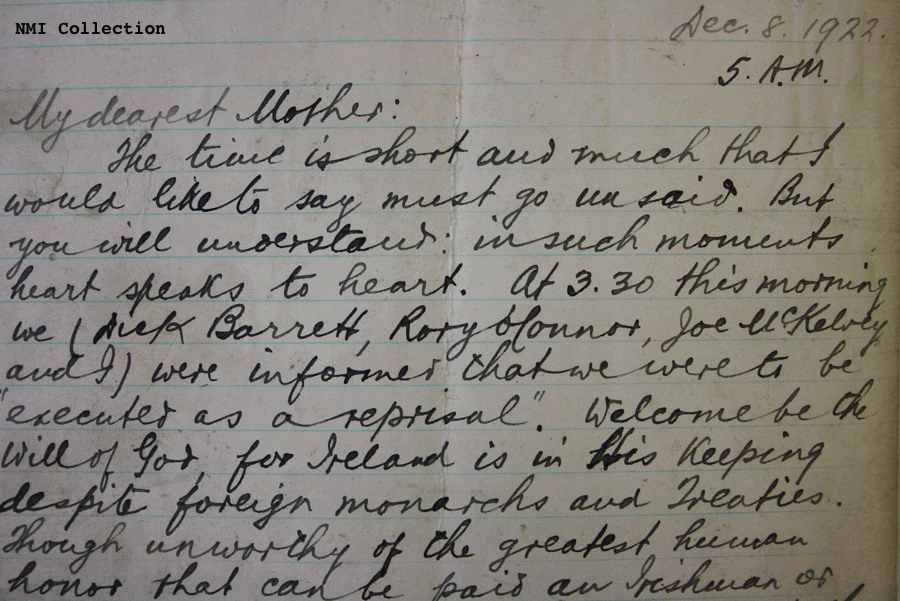 NMI Collection
Dec. 8. 1922.
5. A.M.
My dearest Mother:
The time is short and much that I
would like to say must go unsaid. But
you will understand: in such moments
heart speaks to heart. At 3.30 this morning
we (Dick Barrett, Rory O'Connor, Joe McKelvey
and I) were informed that we were to be
"executed as a reprisal". Welcome be the
Will of God, for Ireland is in His Keeping
despite foreign monarchs and Treaties.
Though unworthy of the greatest human
honor that can be paid an Irishman or